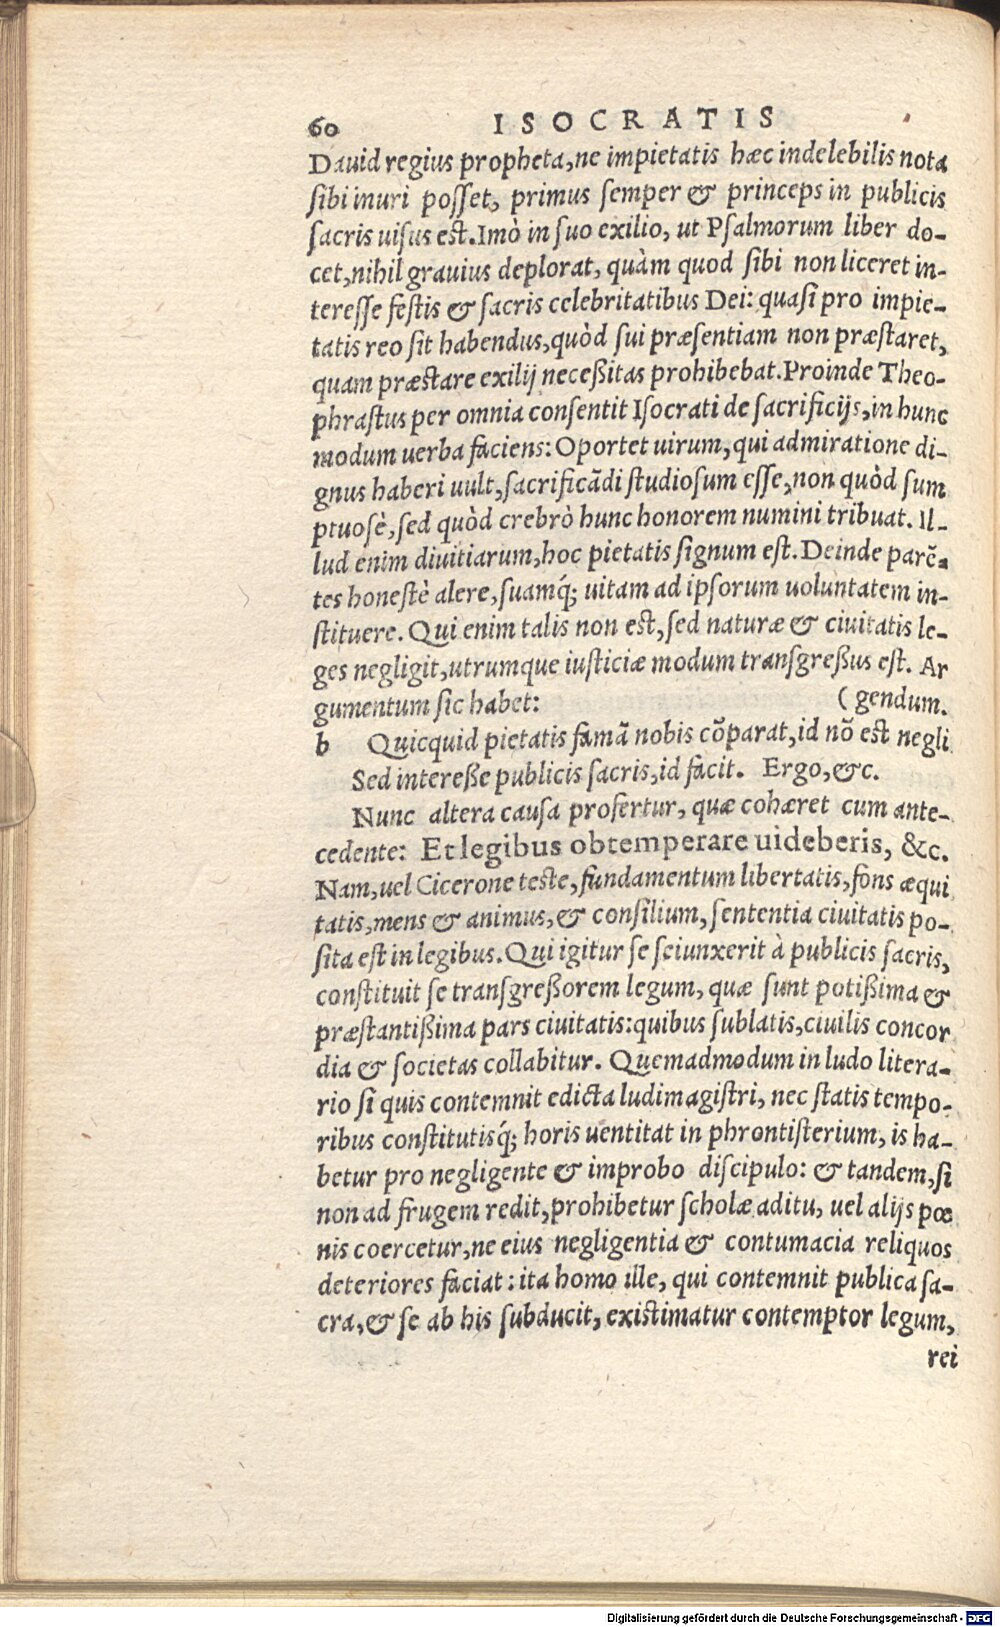 60 ISOCRATIS
Dauid regius propheta, ne impietatis hæc indelebilis nota
sibi inuri posset, primus semper & princeps in publicis
sacris uisus est. Imò in suo exilio, ut Psalmorum liber do-
cet, nihil grauius deplorat, quàm quod sibi non liceret in-
teresse festis & sacris celebritatibus Dei: quasi pro impie-
tatis reo sit habendus, quòd sui præsentiam non præstaret,
quam præstare exilij neceßitas prohibebat. Proinde Theo-
phrastus per omnia consentit Isocrati de sacrificijs, in hunc
modum uerba faciens: Oportet uirum, qui admiratione di-
gnus haberi uult, sacrificãdi studiosum esse, non quòd sum
ptuosè, sed quòd crebrò hunc honorem numini tribuat. Il-
lud enim diuitiarum, hoc pietatis signum est. Deinde parẽ-
tes honestè alere, suamq́; uitam ad ipsorum uoluntatem in-
stituere. Qui enim talis non est, sed naturæ & ciuitatis le-
ges negligit, utrumque iusticiæ modum transgreßus est. Ar
gumentum sic habet: (gendum.
b Quicquid pietatis famã nobis cõparat, id nõ est negli
Sed intereße publicis sacris, id facit. Ergo, &c.
Nunc altera causa profertur, quæ cohæret cum ante-
cedente: Et legibus obtemperare uideberis, &c.
Nam, uel Cicerone teste, fundamentum libertatis, fons æqui
tatis, mens & animus, & consilium, sententia ciuitatis po-
sita est in legibus. Qui igitur se seiunxerit à publicis sacris,
constituit se transgreßorem legum, quæ sunt potißima &
præstantißima pars ciuitatis: quibus sublatis, ciuilis concor
dia & societas collabitur. Quemadmodum in ludo litera-
rio si quis contemnit edicta ludimagistri, nec statis tempo-
ribus constitutisq́; horis uentitat in phrontisterium, is ha-
betur pro negligente & improbo discipulo: & tandem, si
non ad frugem redit, prohibetur scholæ aditu, uel alijs pœ
nis coercetur, ne eius negligentia & contumacia reliquos
deteriores faciat: ita homo ille, qui contemnit publica sa-
cra, & se ab his subducit, existimatur contemptor legum,
rei
Digitalisierung gefördert durch die Deutsche Forschungsgemeinschaft - DFG